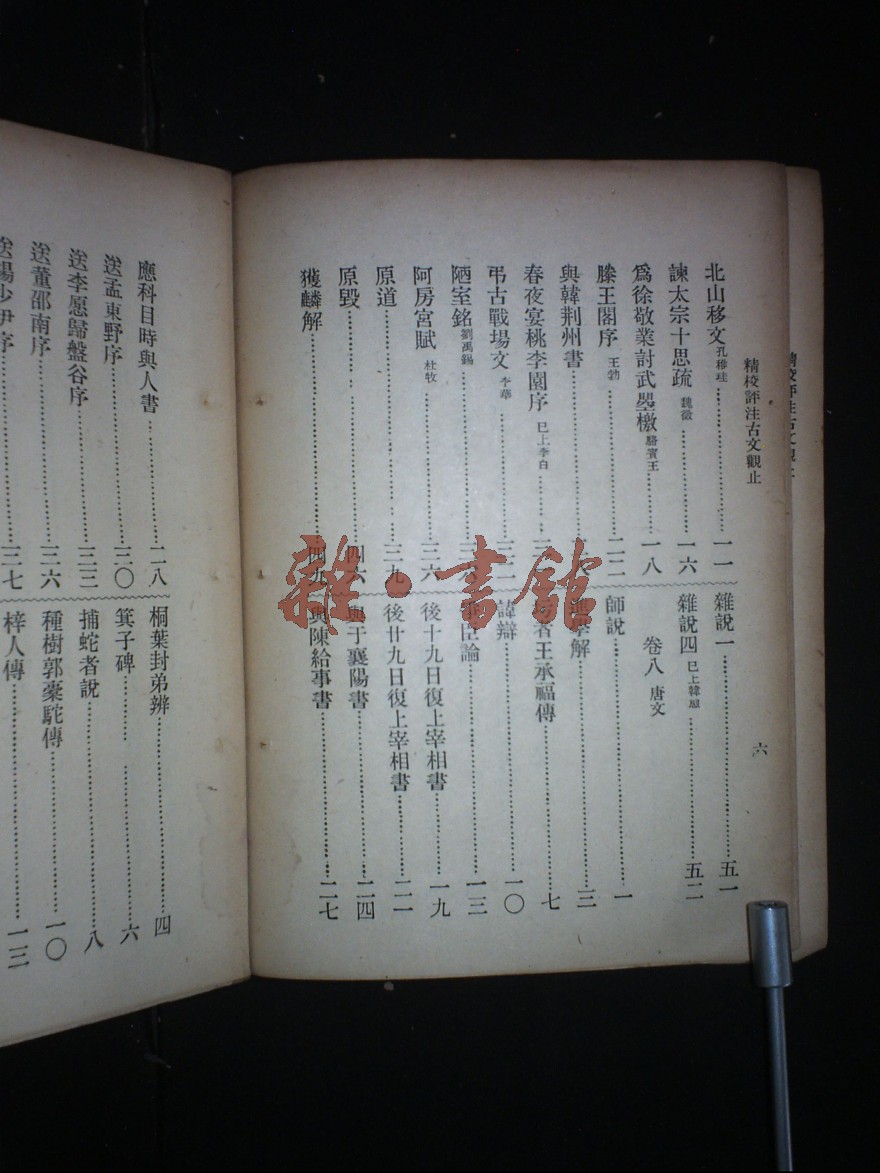 精校評注古文觀止
六
北山移文 孔稚珪 一一
諫太宗十思疏 魏徵 一六
爲徐敬業討武曌檄 駱賓王 一八
滕王閣序 王勃 二二
與韓荆州書
春夜宴桃李園序 已上李白
弔古戰場文 李華
陋室銘 劉禹錫
阿房宮賦 杜牧 三六
原道 三九
原毀 四六
獲麟解 四九
雜說一 五一
雜說四 已上韓愈 五二
卷八 唐文
師說 一
進學解 三
者王承福傳 七
諱辯 一〇
臣論 一三
後十九日復上宰相書 一九
後廿九日復上宰相書 二一
與于襄陽書 二四
與陳給事書 二七
應科目時與人書 二八
送孟東野序 三〇
送李愿歸盤谷序 三三
送董邵南序 三六
送楊少尹序 三七
桐葉封弟辨 四
箕子碑 六
捕蛇者說 八
種樹郭橐駝傳 一〇
梓人傳 一三
雜·書館